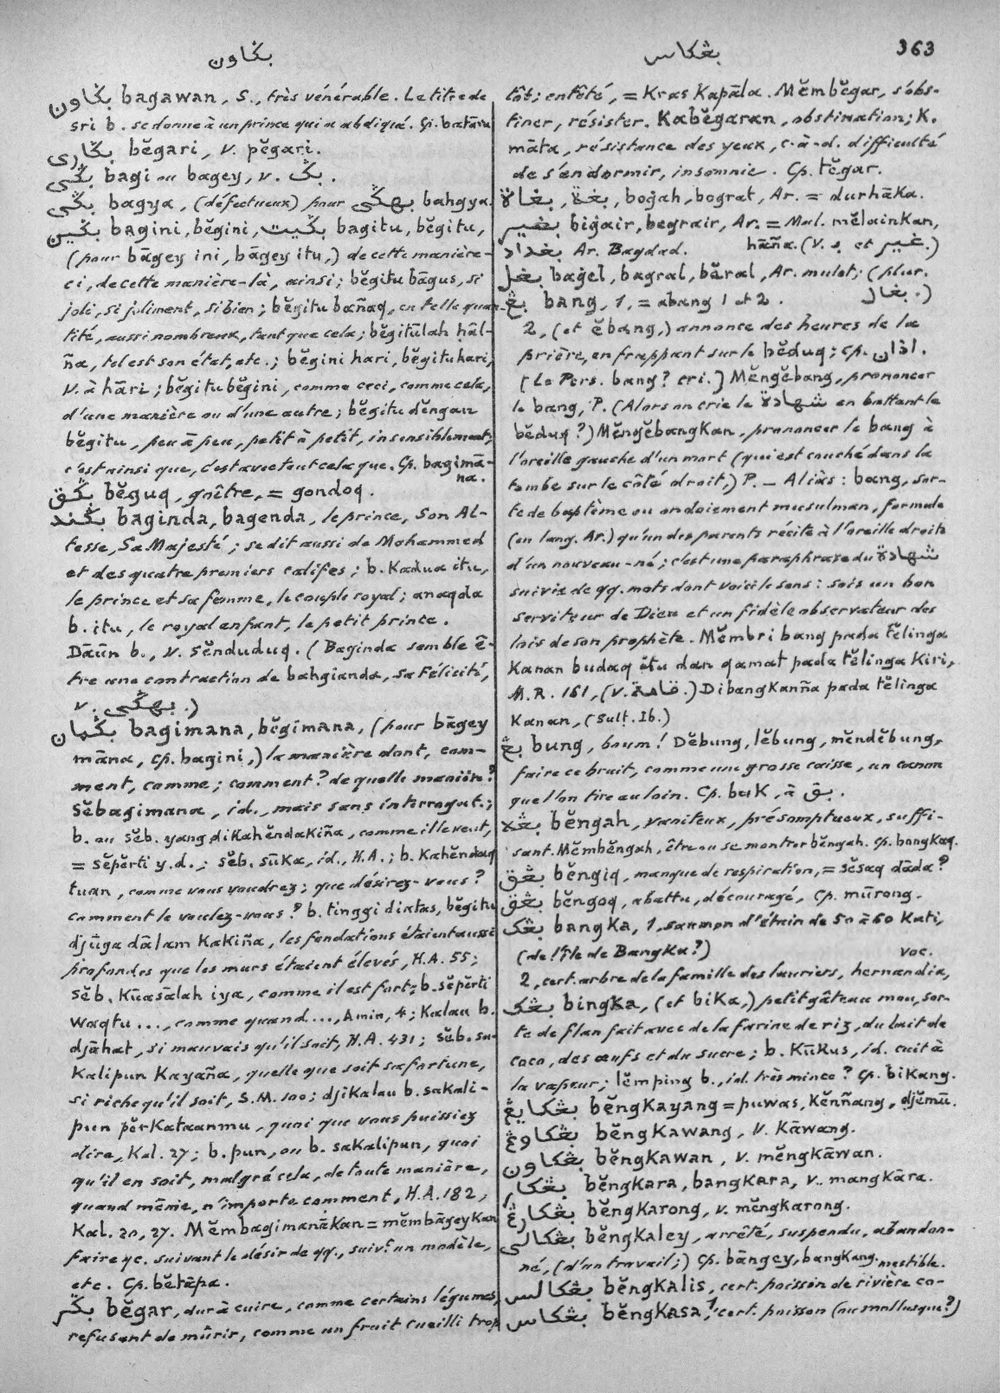 بڬاون
بڠكاس
363
بڬاون bagawan, S., très vénérable. Le titre de
sri b. se donne à un prince qui a abdiqué. Cp. batāra
بڬاري bĕgari, v. pĕgari.
بڬي bagi ou bagey, v. بڬ.
بڬي bagya, (défectueux) pour بهڬي bahgya.
بڬين bagini, bĕgini, بڬيت bagitu, bĕgitu,
(pour bāgey ini, bāgey itu,) de cette manière-
ci, de cette manière-là, ainsi; bĕgitu bāgus, si
joli, si joliment, si bien; bĕgitu bañaq, en telle quan-
tité, aussi nombreux, tant que cela; bĕgitūlah hāl-
ña, tel est son état, etc.; bĕgini hari, bĕgitu hari,
v. à hāri; bĕgitu bĕgini, comme ceci, comme cela,
d'une manière ou d'une autre; bĕgitu dĕngan
bĕgitu, peu à peu, petit à petit, insensiblement;
c'est ainsi que, c'est avec tout cela que. Cp. bagimā-
na.
بڬق bĕguq, goître, = gondoq.
بڬند baginda, bagenda, le prince, Son Al-
tesse, Sa Majesté; se dit aussi de Mohammed
et des quatre premiers califes; b. Kadua itu,
le prince et sa femme, le couple royal; anaqda
b. itu, le royal enfant, le petit prince.
Dāūn b., v. sĕnduduq. (Baginda semble ê-
tre une contraction de bahgianda, sa Félicité,
v. بهڬي.)
بڬمان bagimana, bĕgimana, (pour bāgey
māna, cp. bagini,) la manière dont, com-
ment, comme; comment? de quelle manière?
Sĕbagimana, id., mais sans interrogat.;
b. ou sĕb. yang dikahĕndakiña, comme il le veut,
= sĕpĕrti y. d.; sĕb. sūka, id., H.A.; b. Kahĕndaq
tuan, comme vous voudrez; que désirez-vous?
comment le voulez-vous? b. tinggi diatas, bĕgitu
djūga dālam Kakiña, les fondations étaient aussi
profondes que les murs étaient élevés, H.A. 55;
sĕb. Kūasālah iya, comme il est fort; b. sĕpĕrti
waqtu ..., comme quand ..., Amin, 4; Kalau b.
djāhat, si mauvais qu'il soit, H.A. 431; sĕb. sa-
Kalipun Kayaña, quelle que soit sa fortune,
si riche qu'il soit, S.M. 100; djikalau b. sakali-
pun pĕrKataanmu, quoi que vous puissiez
dire, Kal. 27; b. pun, ou b. sakalipun, quoi
qu'il en soit, malgré cela, de toute manière,
quand même, n'importe comment, H.A. 182,
Kal. 20, 27. Mĕmbagimanākan = mĕmbāgeyKan
faire qc. suivant le désir de qq., suiv.t un modèle,
etc. Cp. bĕtāpa.
بڬر bĕgar, dur à cuire, comme certains légumes,
refusant de mûrir, comme un fruit cueilli trop
tôt; entêté, = Kras Kapāla. Mĕmbĕgar, s'obs-
tiner, résister. Kabĕgaran, obstination; K.
māta, résistance des yeux, c.-à-d. difficulté
de s'endormir, insomnie. Cp. tĕgar.
بغاة, بغة, boġah, bograt, Ar. = durhāka.
بغير biġair, begrair, Ar. = Mal. mĕlainkan,
بغداد Ar. Bagdad. hāña. (V. ب et غير.)
بغل baġel, bagral, bĕral, Ar. mulet; (plur.
بغال.)
بڠ bang, 1, = abang 1 et 2.
2, (et ĕbang,) annonce des heures de la
prière, en frappant sur le bĕduq; cp. اذان.
(Le Pers. bang? cri.) Mĕngĕbang, prononcer
le bang, P. (Alors on crie le شهادة en battant le
bĕduq?) MĕngĕbangKan, prononcer le bang à
l'oreille gauche d'un mort (qui est couché dans la
tombe sur le côté droit,) P. — Aliàs: bang, sor-
te de baptême ou ondoiement musulman, formule
(en lang. Ar.) qu'un des parents récite à l'oreille droite
d'un nouveau-né; c'est une paraphrase du شهادة
suivie de qq. mots dont voici le sens: sois un bon
serviteur de Dieu et un fidèle observateur des
lois de son prophète. Mĕmbri bang pada tĕlinga
Kanan budaq itu dan qamat pada tĕlinga Kiri,
M.R. 161, (v. قامة.) Dibangkanña pada tĕlinga
Kanan, (Sulṭ. Ib.)
بڠ bung, boum! Dĕbung, lĕbung, mĕndĕbung,
faire ce bruit, comme une grosse caisse, un canon
que l'on tire au loin. Cp. buK, à بق.
بڠه bĕngah, vaniteux, présomptueux, suffi-
sant. Mĕmbĕngah, être ou se montrer bĕngah. Cp. bangKaq.
بڠق bĕngiq, manque de respiration, = sĕsaq dāda?
بڠق bĕngoq, abattu, découragé, Cp. mūrong.
بڠك bangKa, 1, saumon d'étain de 50 à 60 Kati,
(de l'île de BangKa?) voc.
2, cert. arbre de la famille des lauriers, hernandia,
بڠك bingKa, (et biKa,) petit gâteau mou, sor-
te de flan fait avec de la farine de riz, du lait de
coco, des œufs et du sucre; b. KūKus, id. cuit à
la vapeur; lĕmping b., id. très mince? Cp. biKang.
بڠكايڠ bĕngKayang = puwas, Kĕnñang, djĕmū.
بڠكاوڠ bĕngKawang, v. Kāwang.
بڠكاون bĕngKawan, v. mĕngkāwan.
بڠكار bĕngKara, bangKara, v. mangKāra.
بڠكارڠ bĕngKarong, v. mĕngKarong.
بڠكالي bĕngKaley, arrêté, suspendu, abandon-
né, (d'un travail;) Cp. bāngey, bangKang.
بڠكالس bĕngKalis, cert. poisson de rivière co-
mestible.
بڠكاس bĕngKasa, cert. poisson (ou mollusque?)